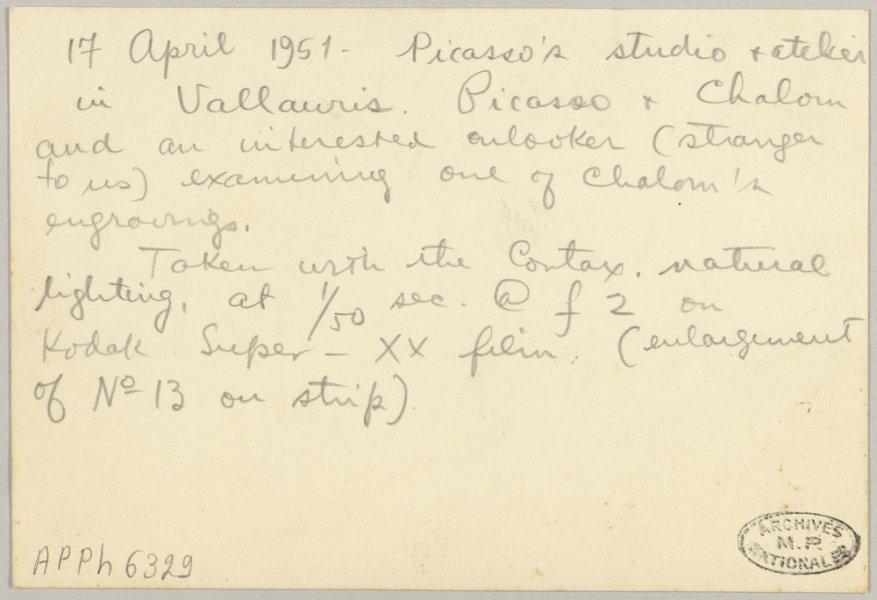 17 April 1951 - Picasso's studio + atelier
in Vallauris. Picasso + Chalom
and an interested onlooker (stranger
to us) examining one of Chalom's
engravings.
Taken with the Contax. natural
lighting, at 1/50 sec. @ f 2 on
Kodak Super - XX film. (enlargement
of Nº 13 on strip)
APPh 6329
ARCHIVES
M.P.
NATIONALES